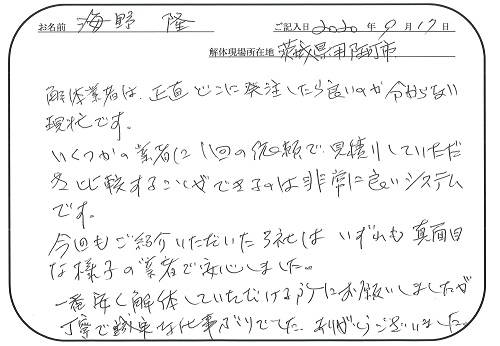 お名前 海野 隆 ご記入日 2020 年 9 月 17 日
解体現場所在地 茨城県 町市
解体業者は、正直どこに発注したら良いのか分からない
現状です。
いくつかの業者に1回の依頼で、見積りしていただ
き比較することができるのは非常に良いシステム
です。
今回もご紹介いただいた3社は いずれも真面目
な様子の業者で安心しました。
一番安く解体していただける所にお願いしましたが
丁寧で 実な仕事ぶりでした。ありがとうございました。